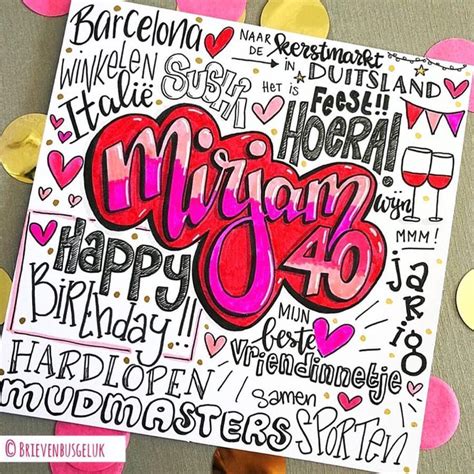 Barcelona
NAAR
DE
Kerstmarkt
IN
DUITSLAND
WINKELEN
SUSHI
Italië
HET IS
FEEST!!
HOERA!
Mirjam
40
wijn
MMM!
HAPPY
BIRTHDAY!!
jarig
MIJN
beste
vriendinnetje
HARDLOPEN
Samen
MUDMASTERS
SPORTEN
© BRIEVENBUSGELUK